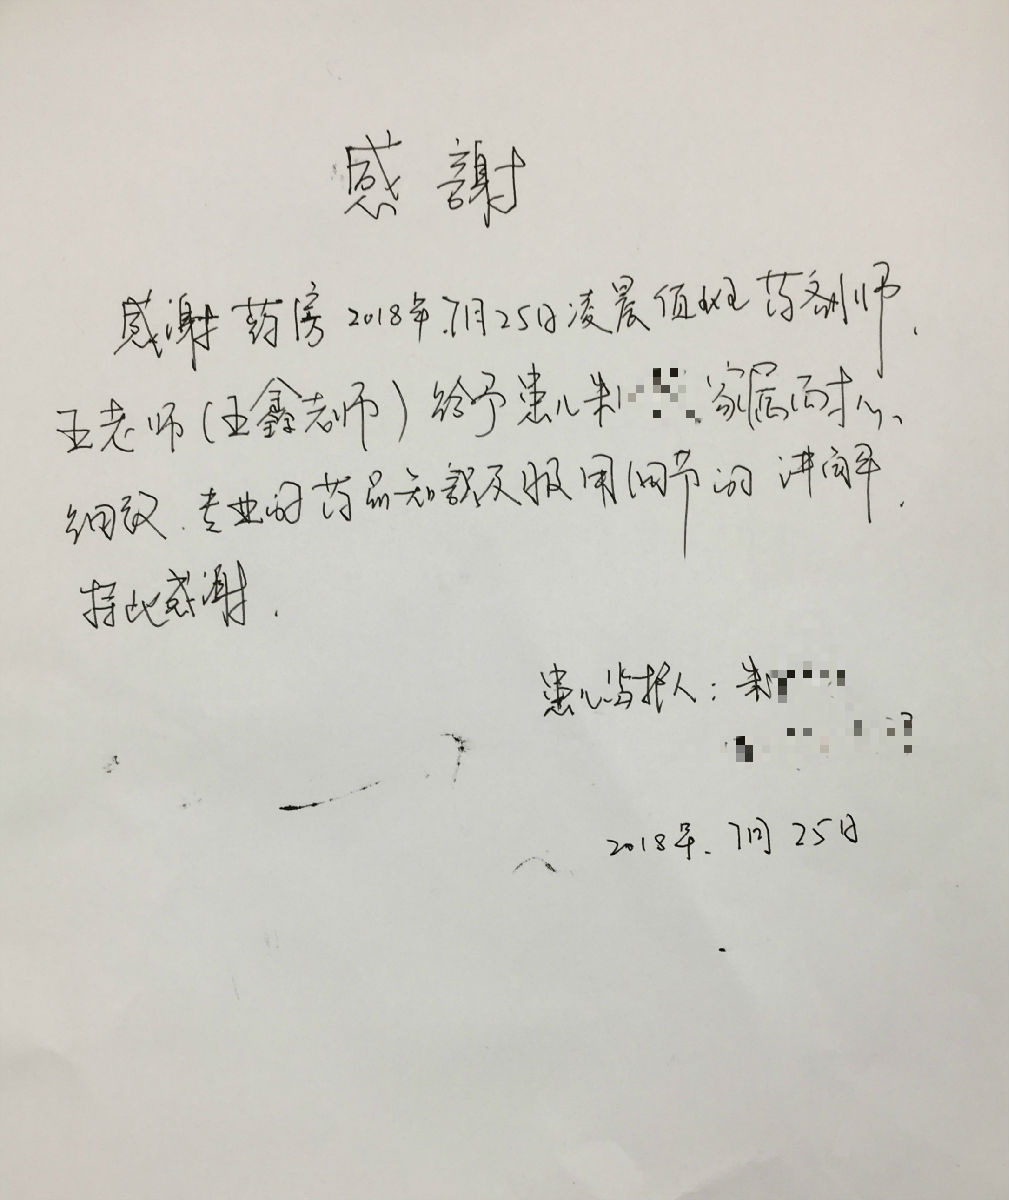 感謝
感谢药房2018年.7月25日凌晨值班药剂师.
王老师(王鑫老师)给予患儿朱 家属耐心、
细致.专业的药品知识及服用细节的讲解.
特此感谢.
患儿监护人:朱
2018年.7月25日